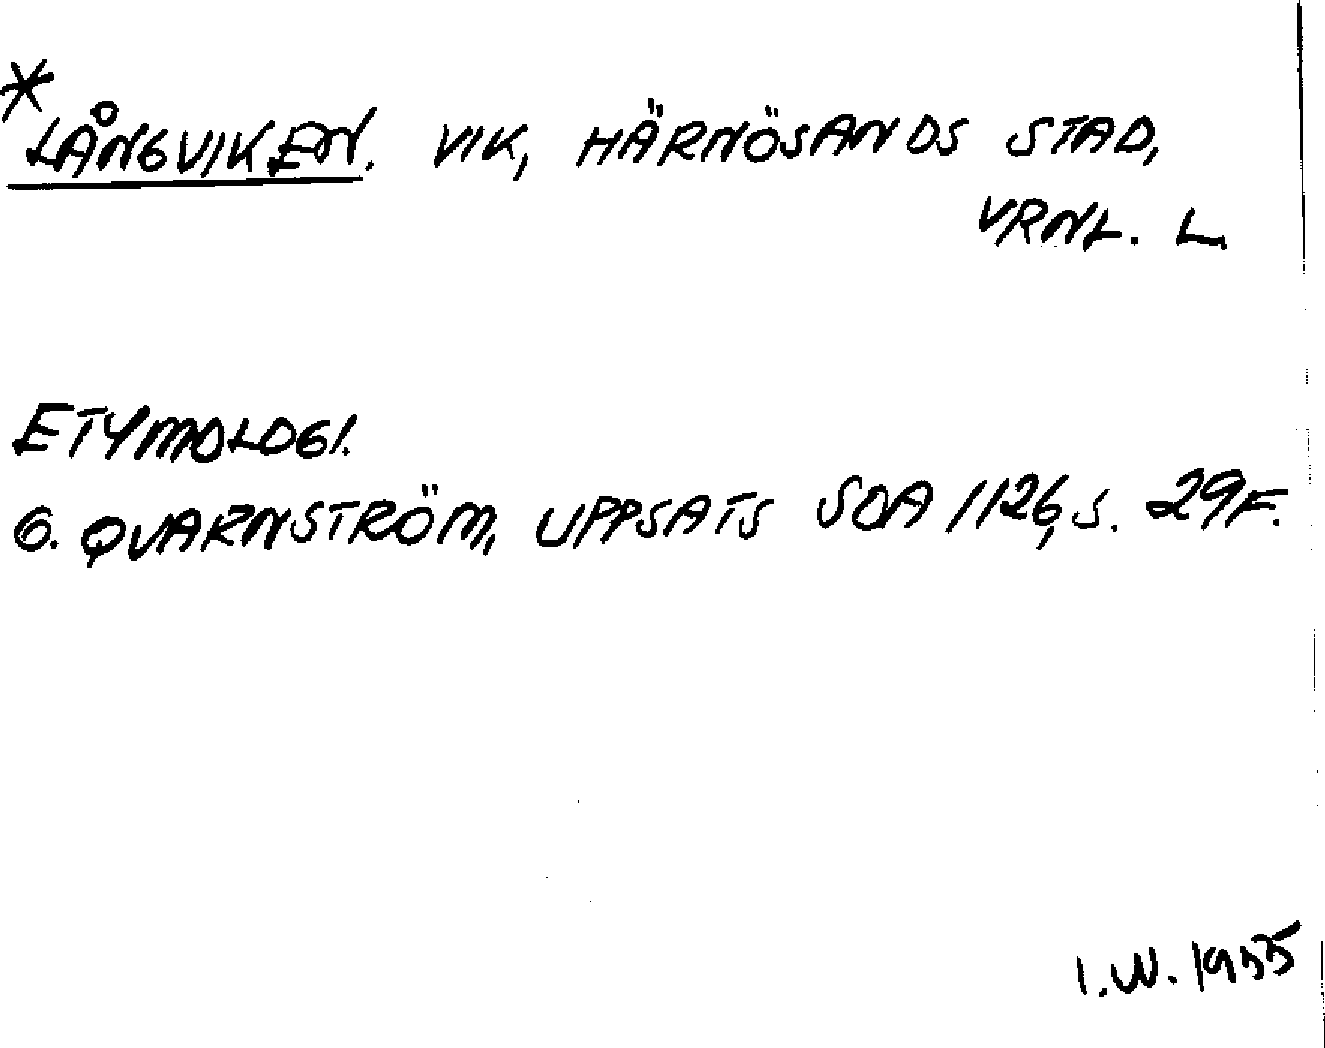 *LÅNGVIKEN. VIK, HÄRNÖSANDS STAD,
VRNL. L.
ETYMOLOGI.
G. QVARNSTRÖM, UPPSATS SOA 1126, S. 29F.
I.W. 1955